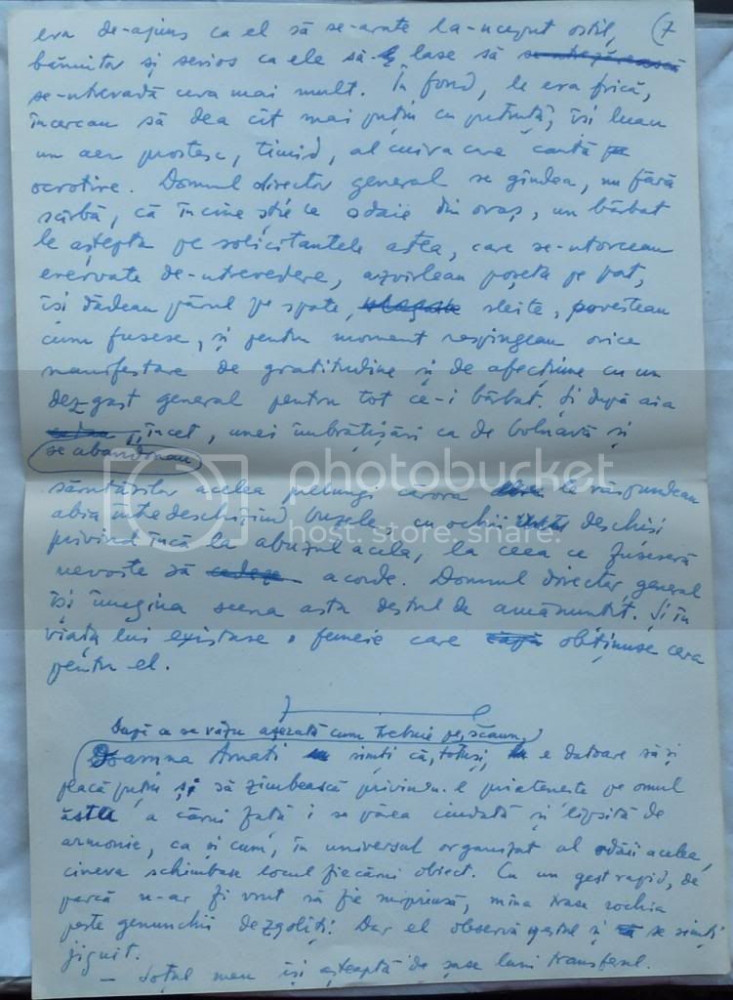 (7
era de-ajuns ca el să se-arate la-nceput ostil,
bănuitor și serios ca ele să lase să
se-ntrevadă ceva mai mult. În fond, le era frică,
încercau să dea cît mai puțin cu putință, își luau
un aer prostesc, timid, al cuiva care caută
ocrotire. Domnul director general se gîndea, nu fără
scîrbă, că în cine știe ce odaie din oraș, un bărbat
le aștepta pe solicitantele astea, care se-ntorceau
enervate de-ntrevedere, azvîrleau poșeta pe pat,
își dădeau părul pe spate, sleite, povesteau
cum fusese, și pentru moment respingeau orice
manifestare de gratitudine și de afecțiune cu un
dezgust general pentru tot ce-i bărbat. Și după aia
se abandonau, încet, unei îmbrățișări ca de bolnavă și
sărutărilor acelea prelungi cărora le răspundeau
abia întredeschizînd buzele, cu ochii deschiși
privind încă la abuzul acela, la ceea ce fuseseră
nevoite să acorde. Domnul director general
își imagina scena asta destul de amănunțit. Și în
viața lui existase o femeie care obținuse ceva
pentru el.
După ce se văzu așezată cum trebuie pe scaun,
Doamna Amati simți că, totuși, e datoare să-și
facă puțin și să zîmbească privindu-l prietenește pe omul
ăsta a cărui față i se părea ciudată și lipsită de
armonie, ca și cum, în universul organizat al odăii acelea,
cineva schimbase locul fiecărui obiect. Cu un gest rapid, de
parcă n-ar fi vrut să fie surprinsă, mîna trase rochia
peste genunchii dezgoliți. Dar el observă gestul și se simți
jignit.
— Soțul meu își așteaptă de șase luni transferul.
photobucket
host. store. share.